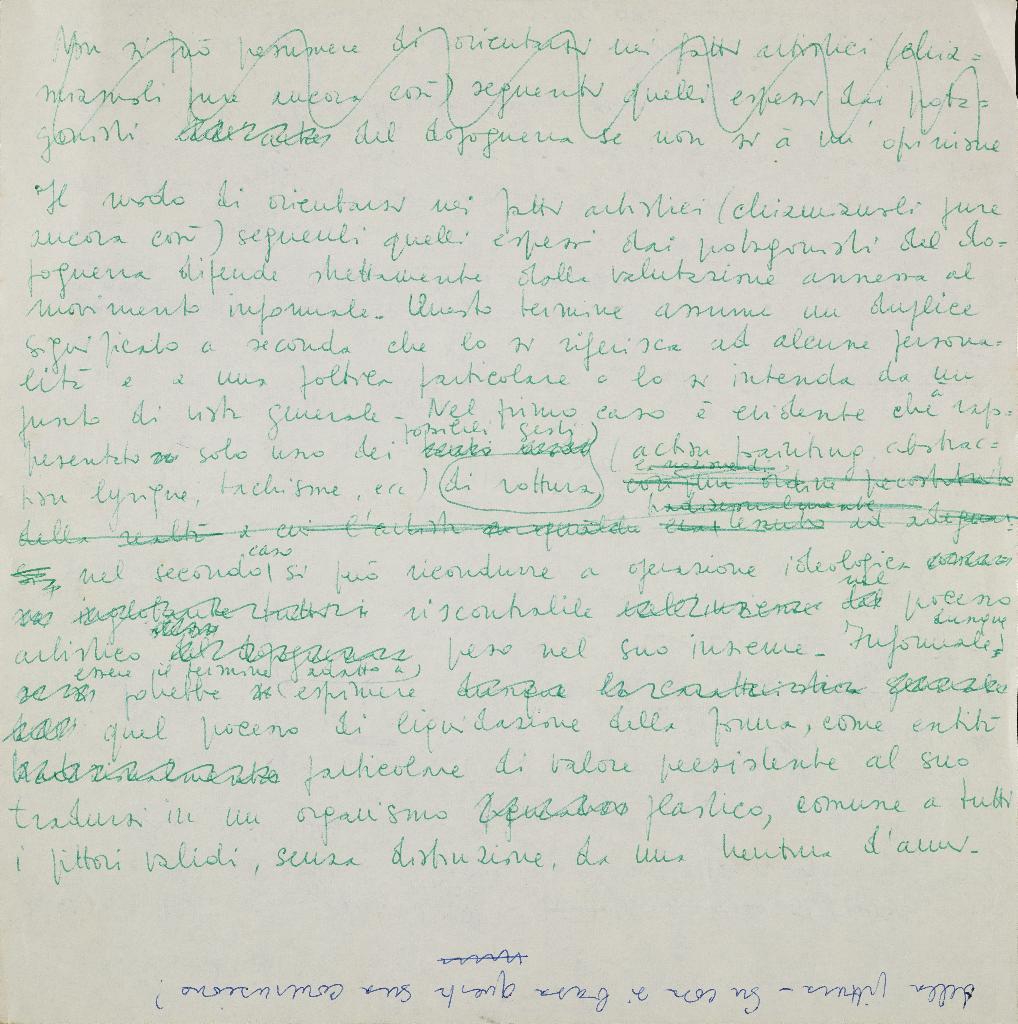 Non si può presumere di orientarsi nei fatti artistici (chia=
miamoli pure ancora così) seguenti quelli espressi dai prota=
gonisti del dopoguerra se non si à un' opinione
Il modo di orientarsi nei fatti artistici (chiamiamoli pure
ancora così) seguenti quelli espressi dai protagonisti del do-
poguerra dipende strettamente dalla valutazione annessa al
movimento informale. Questo termine assume un duplice
significato a seconda che lo si riferisca ad alcune persona-
lità e a una poetica particolare o lo si intenda da un
punto di vista generale - Nel primo caso è evidente che à rap-
possibili gesti
presentato solo uno dei (action painting, abstrac=
tion lyrique, tachisme, ecc) di rottura, con un ordine precostituito
tradizionalmente
della realtà a cui l'artista era tenuto ad adeguar=
caso
nel secondo si può ricondurre a operazione ideologica
nel
riscontrabile processo
dunque
artistico preso nel suo insieme - Informale,
essere il termine adatto a
potrebbe esprimere
quel processo di liquidazione della forma, come entità
particolare di valore preesistente al suo
tradursi in un organismo plastico, comune a tutti
i pittori validi, senza distinzione, da una trentina d'anni -
della pittura - Su cosa si basa questa sua convinzione?